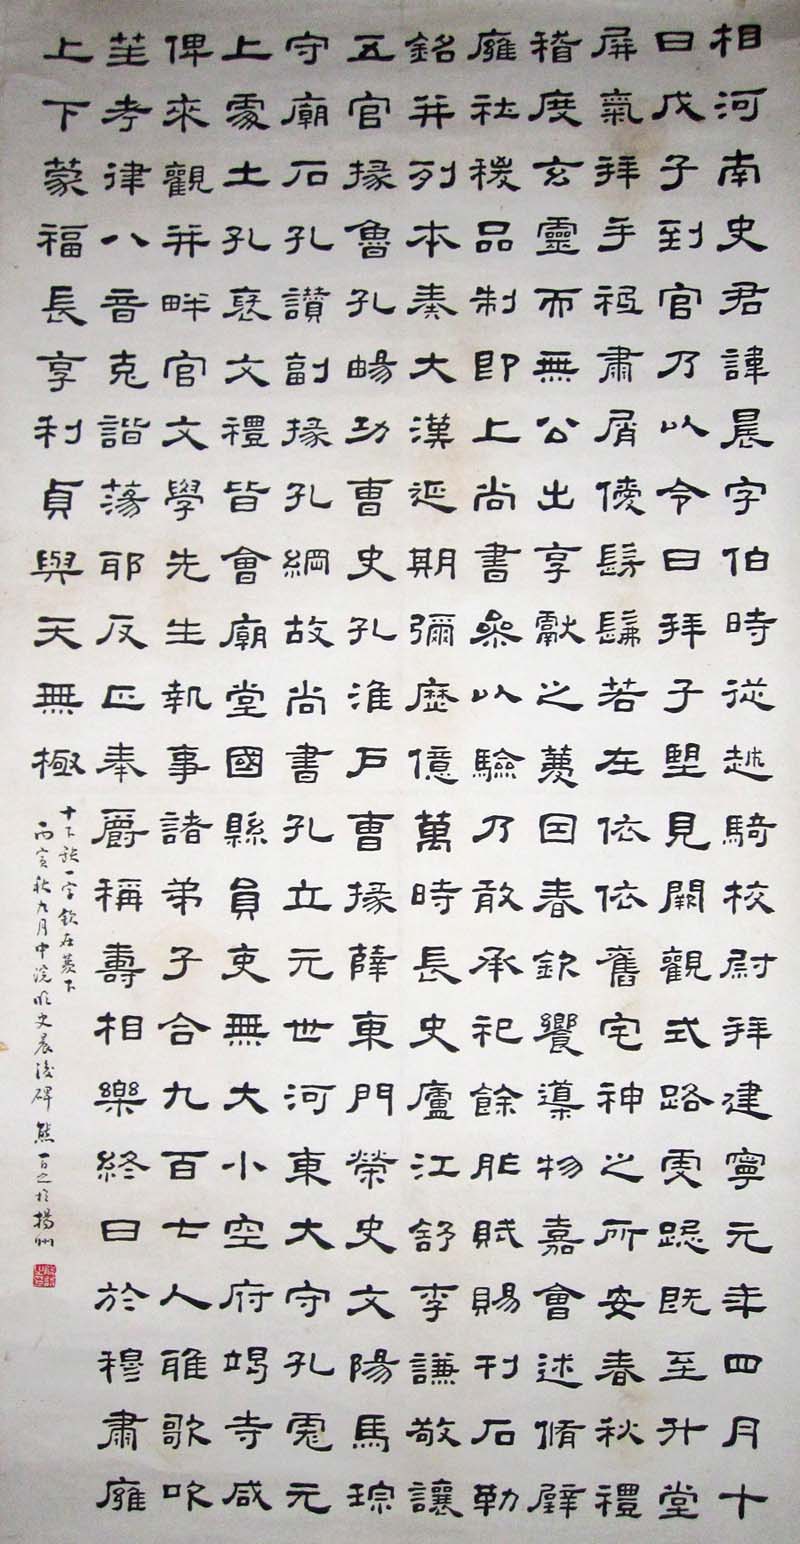 相河南史君諱晨字伯時從越騎校尉拜建寧元年四月十
日戊子到官乃以令日拜子望見闕觀式路虔跽既至升堂
屏氣拜手祗肅屑僾髣髴若在依依舊宅神之所安春秋禮
稽度玄靈而無公出享獻之薦因春欽饗導物嘉會述脩璧
廱社稷品制即上尚書參以驗乃敢承祀餘胙賦賜刊石勒
銘并列本奏大漢延期彌歷億萬時長史廬江舒李謙敬讓
五官掾魯孔暢功曹史孔淮戶曹掾薛東門榮史文陽馬琮
守廟石孔讃副掾孔綱故尚書孔立元世河東大守孔彪元
上處土孔褒文禮皆會廟堂國縣員吏無大小空府竭寺咸
俾來觀并畔官文學先生執事諸弟子合九百七人雅歌吹
笙考律八音克諧蕩耶反正奉爵稱壽相樂終日於穆肅廱
上下蒙福長享利貞與天無極
十下脫一字欽在薦下
丙寅秋九月中浣临史晨後碑 熊百之於揚州